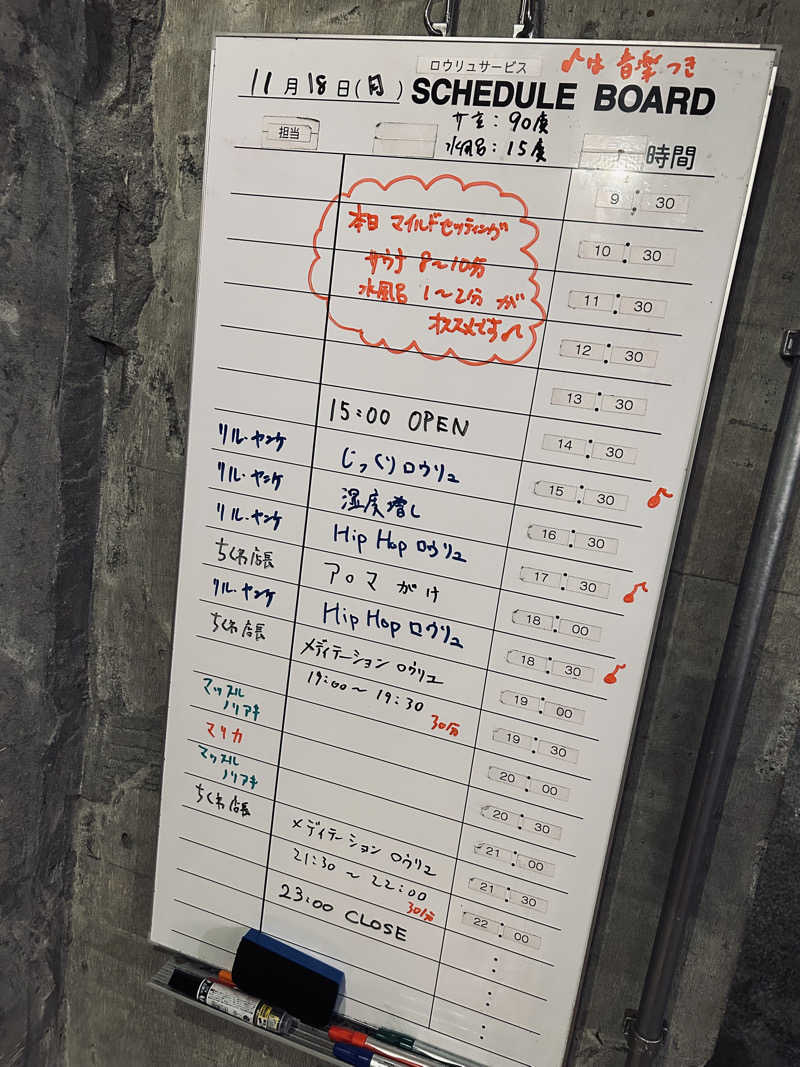 ロウリュサービス
♪は 音楽つき
11月18日(月)
SCHEDULE BOARD
サ室:90度
水風呂:15度
担当
時間
9:30
本日 マイルドセッティング
10:30
サウナ 8~10分
水風呂 1~2分 が
11:30
オススメです♪
12:30
13:30
15:00 OPEN
14:30
リル・ヤンケ じっくりロウリュ 15:30 ♪
リル・ヤンケ 湿度増し 16:30
リル・ヤンケ Hip Hop ロウリュ 17:30 ♪
ちくわ店長 アロマがけ 18:00
リル・ヤンケ Hip Hop ロウリュ 18:30 ♪
ちくわ店長 メディテーション ロウリュ 19:00
19:00~19:30 30分
マッスルノリアキ 19:30
マリカ 20:00
マッスルノリアキ 20:30
ちくわ店長 21:00
メディテーション ロウリュ 21:30
21:30~22:00 30分 22:00
23:00 CLOSE